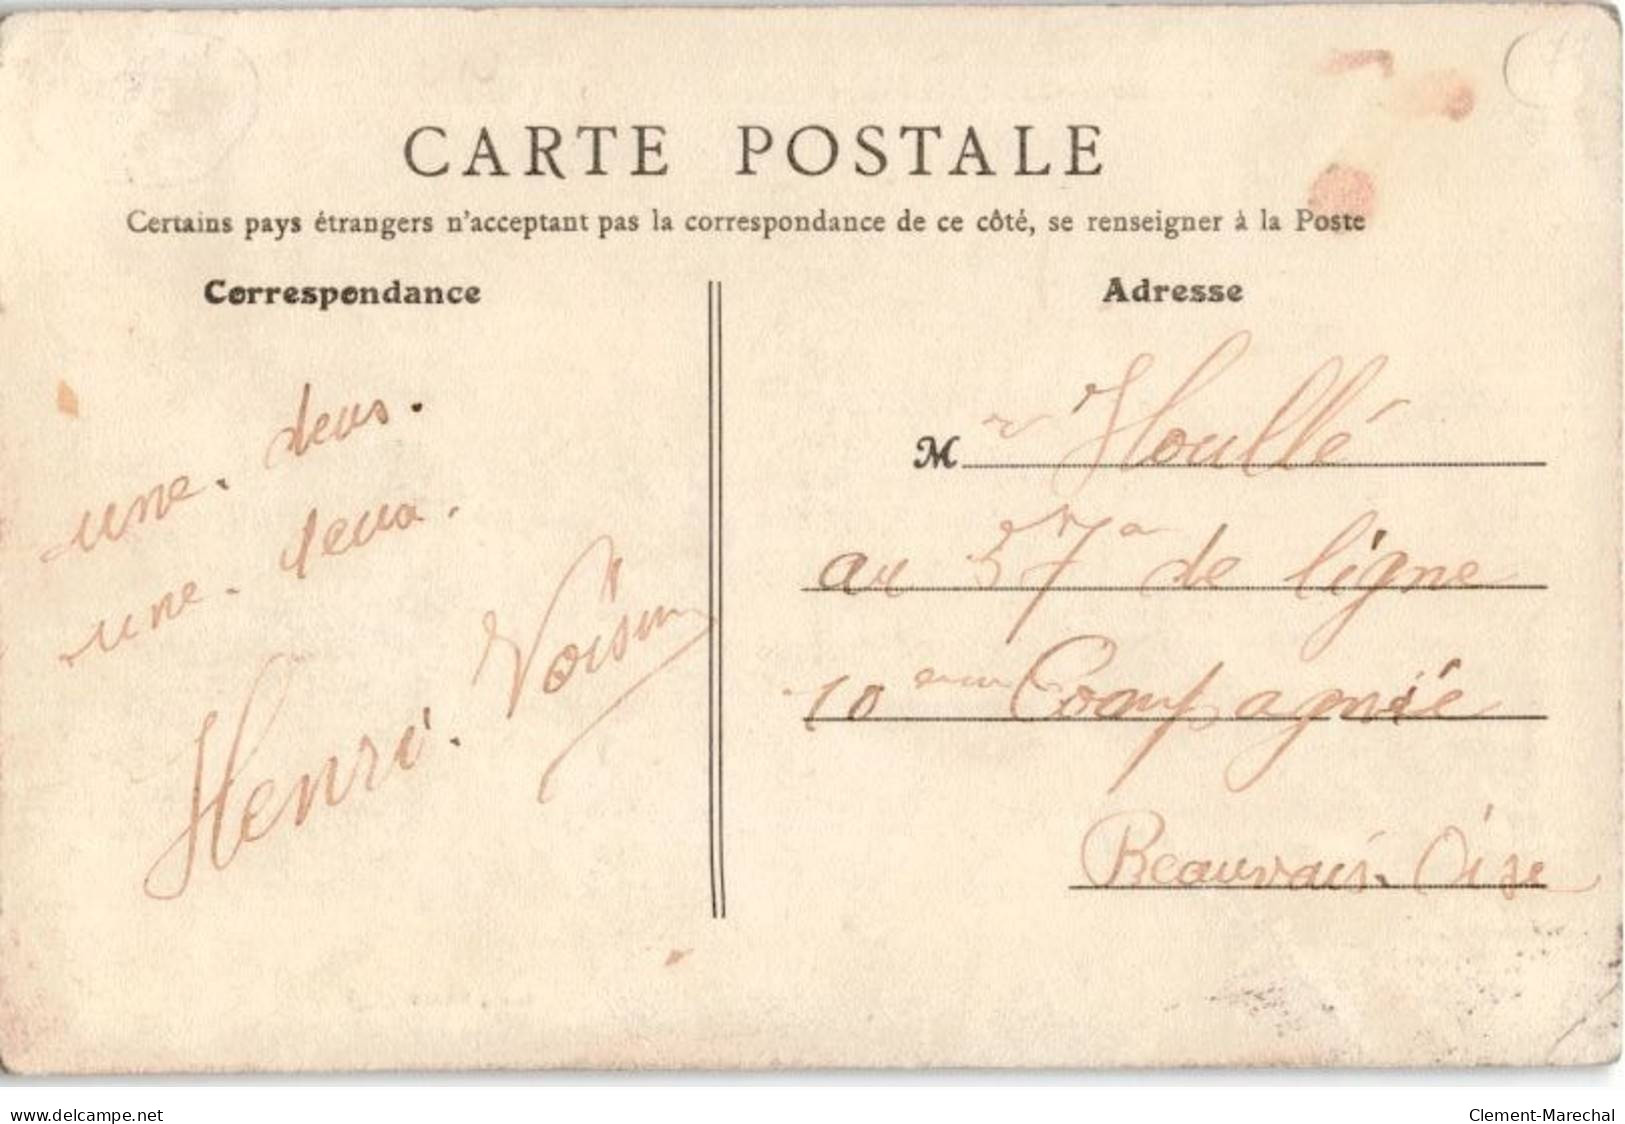 CARTE POSTALE
Certains pays étrangers n'acceptant pas la correspondance de ce côté, se renseigner à la Poste
Correspondance
une. deus.
une. deux.
Henri. Voisin
Adresse
M r Houllé
au 57e de ligne
10 eme Compagnie
Beauvais. Oise
www.delcampe.net
Clement-Marechal